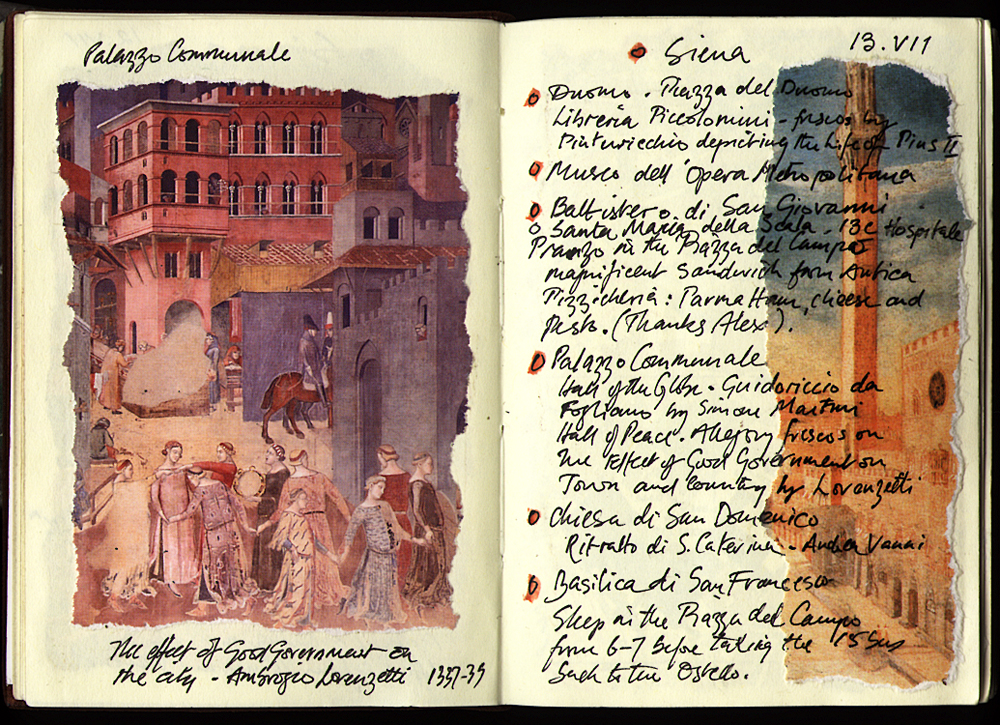 Palazzo Communale
The effect of Good Government on
the city - Ambrogio Lorenzetti 1337-39
Siena 13.VII
Duomo. Piazza del Duomo
Libreria Piccolomini - frescos by
Pinturicchio depicting the Life of Pius II
Museo dell'Opera Metropolitana
Battistero di San Giovanni
Santa Maria della Scala. 13c Hospitale
Pranzo in the Piazza del Campo
magnificent sandwich from Antica
Pizzicheria: Parma Ham, cheese and
Pesto. (Thanks Alex).
Palazzo Communale
Hall of the Globe. Guidoriccio da
Fogliano by Simone Martini
Hall of Peace. Allegory frescos on
the Effect of Good Government on
Town and Country by Lorenzetti
Chiesa di San Domenico
Ritratto di S. Caterina - Andrea Vanni
Basilica di San Francesco
Sleep in the Piazza del Campo
from 6-7 before taking the 15 bus
back to the Ostello.